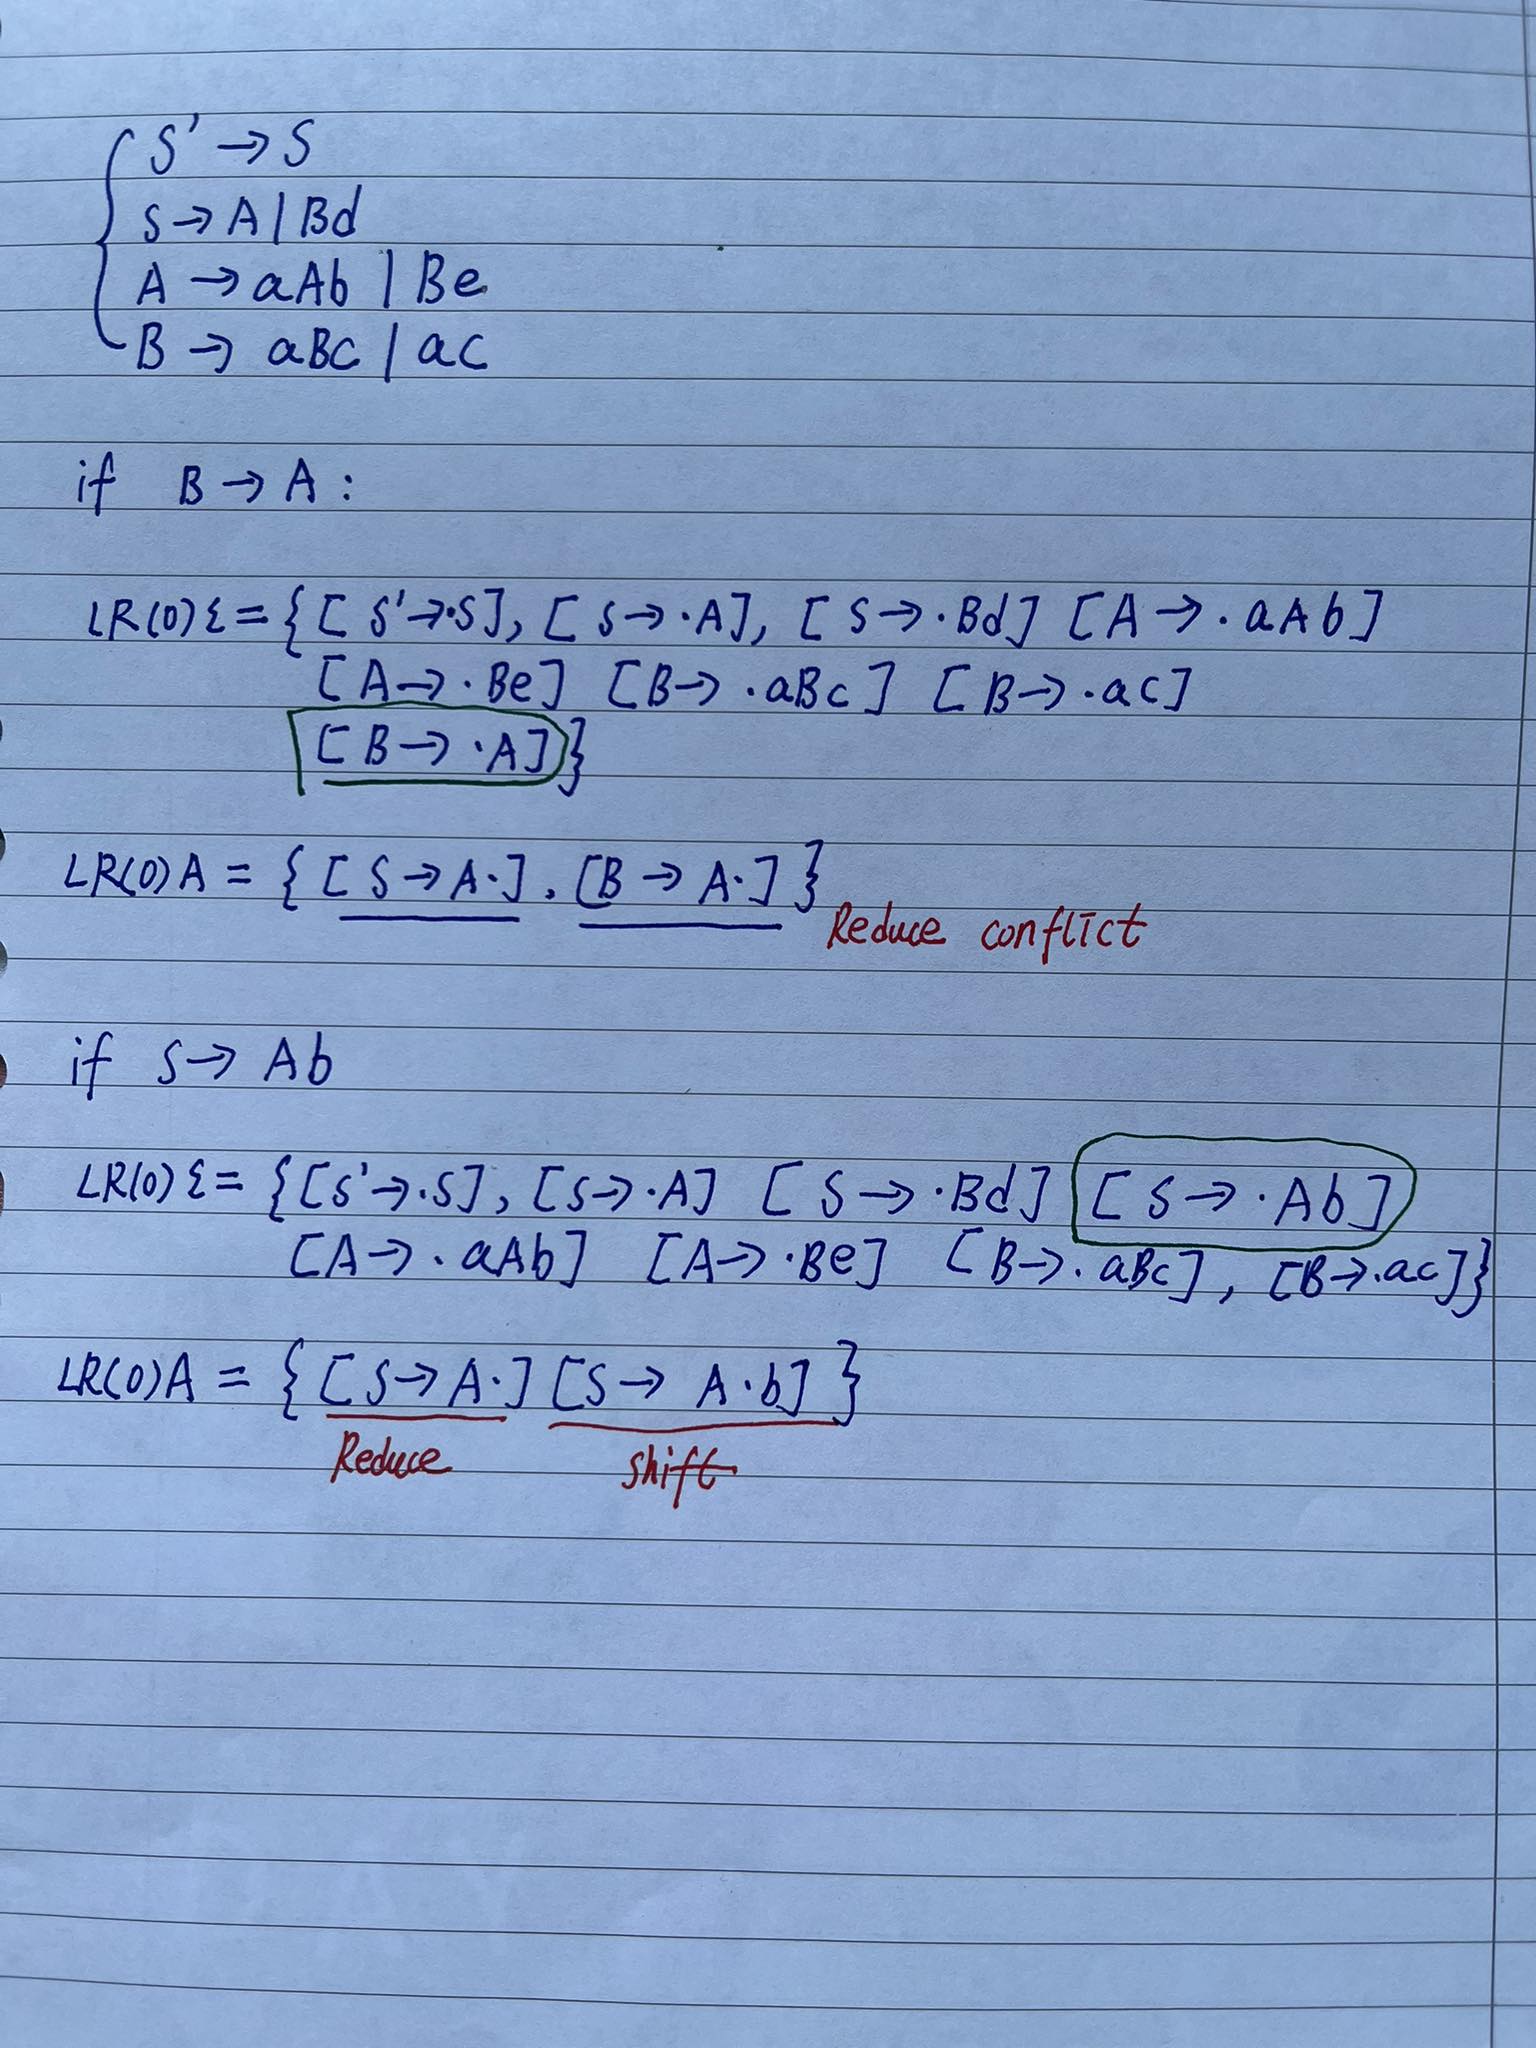 S' → S
S → A | Bd
A → aAb | Be
B → aBc | ac
if B → A :
LR(0) ε = { [ S' → ·S], [ S → ·A], [ S → ·Bd] [A → ·aAb]
[A → ·Be] [B → ·aBc] [B → ·ac]
[B → ·A] }
LR(0) A = { [ S → A·] , [B → A·] }
Reduce conflict
if S → Ab
LR(0) ε = { [S' → ·S], [S → ·A] [ S → ·Bd] [ S → ·Ab]
[A → ·aAb] [A → ·Be] [B → ·aBc] , [B → ·ac] }
LR(0) A = { [S → A·] [S → A·b] }
Reduce shift